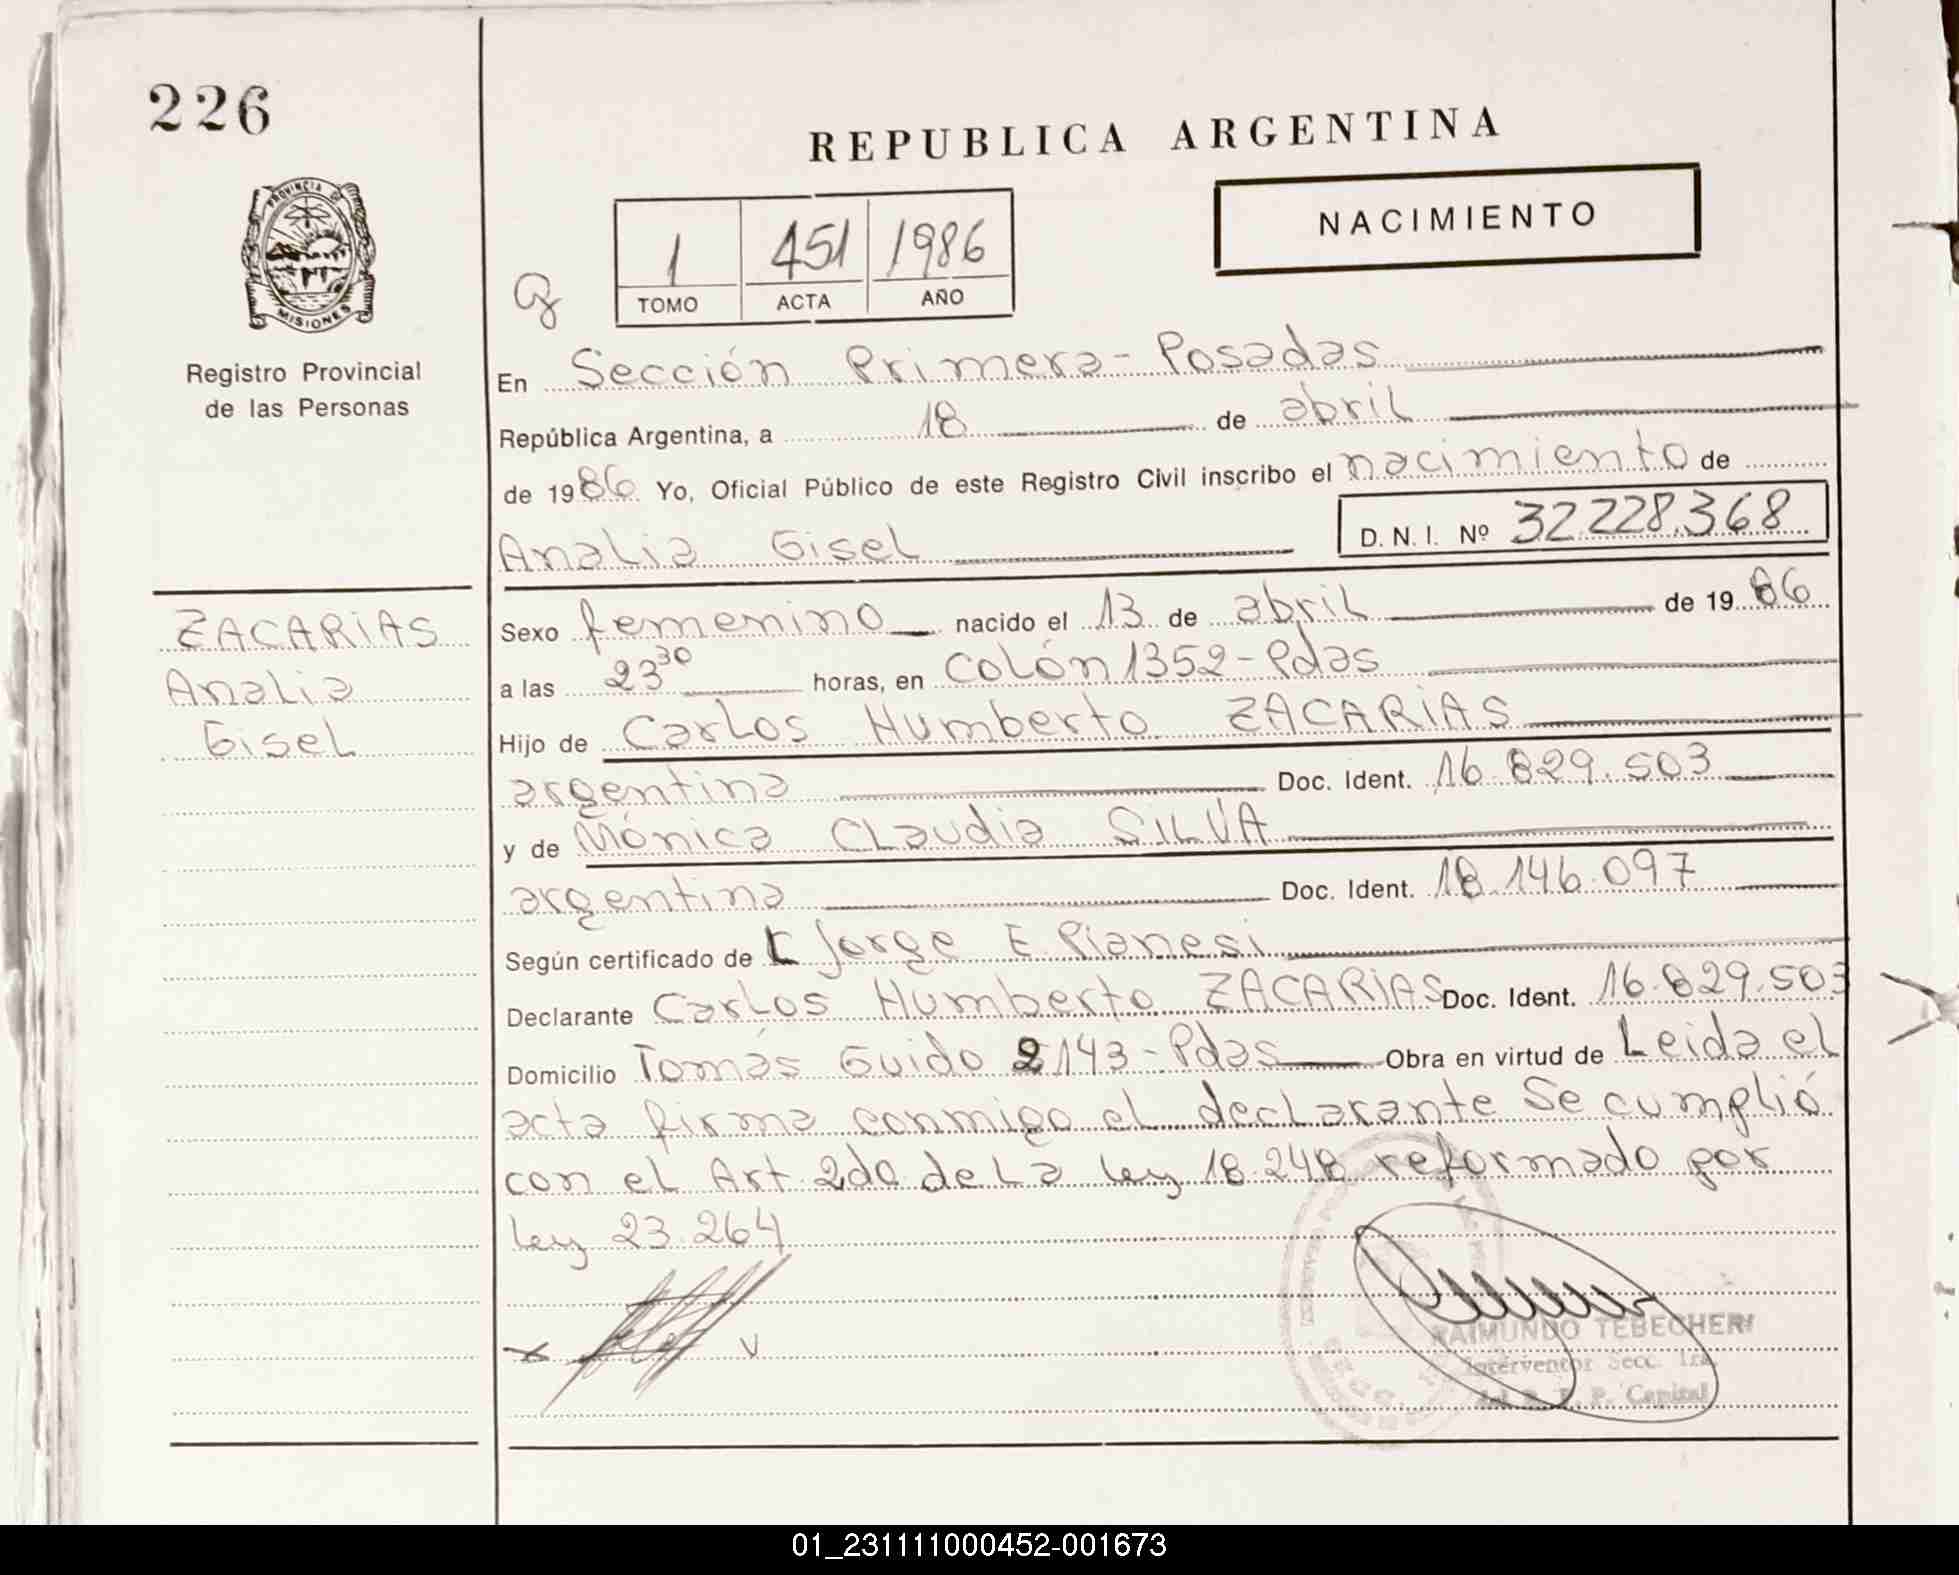 226
REPUBLICA ARGENTINA
NACIMIENTO
PROVINCIA DE
MISIONES
Registro Provincial
de las Personas
1 451 1986
TOMO ACTA AÑO
En Sección Primera - Posadas
República Argentina, a 18 de abril
de 1986 Yo, Oficial Público de este Registro Civil inscribo el nacimiento de
Analia Gisel D. N. I. Nº 32.228.368
ZACARIAS
Analia
Gisel
Sexo femenino nacido el 13 de abril de 1986
a las 23 30 horas, en Colón 1352 - Pdas
Hijo de Carlos Humberto ZACARIAS
argentina Doc. Ident. 16.829.503
y de Mónica Claudia SILVA
argentina Doc. Ident. 18.146.097
Según certificado de Jorge E Pianesi
Declarante Carlos Humberto ZACARIAS Doc. Ident. 16.829.503
Domicilio Tomás Guido 2143 - Pdas Obra en virtud de Leida el
acta firma conmigo el declarante Se cumplió
con el Art. 2do de La Ley 18.248 reformado por
Ley 23.264
RAIMUNDO TEBECHERI
Interventor Secc. 1ra.
del R. P. P. Capital
01_231111000452-001673